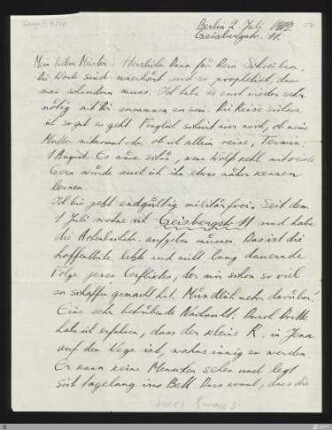 Berlin 2. Juli 1912
Geisbergstr. 11.
Mein lieber Meister! Herzlichen Dank für Dein Schreiben.
Die Worte sind und so prophetisch, dass
man schaudern muss. Ich habe es auch wieder sehr
nötig mit Dir zusammen zu sein. Die Reise
ist so gut es geht. Fraglich scheint nur noch, ob meine
Mutter mitkommt oder ob ich allein reise, Termin:
1 August. Es wäre schön, wenn Wolfs
Gern würde auch ich ihn etwas näher kennen
lernen.
Ich bin jetzt endgültig militärfrei. Seit dem
1 Juli wohne ich Geisbergstr 11 und habe
die aufgeben müssen. Das ist die
hoffentlich letzte und nicht lang dauernde
Folge jenes Conflictes, der mir schon so viel
zu schaffen gemacht hat. Mündlich mehr darüber!
Eine sehr betrübende Nachricht. Durch Dritte
habe ich erfahren, dass der kleine R. in Jena
auf dem Wege ist, wahnsinnig zu werden.
Er kann keine Menschen sehen und liegt
seit Tagelang im Bett. Dazu kommt, dass die